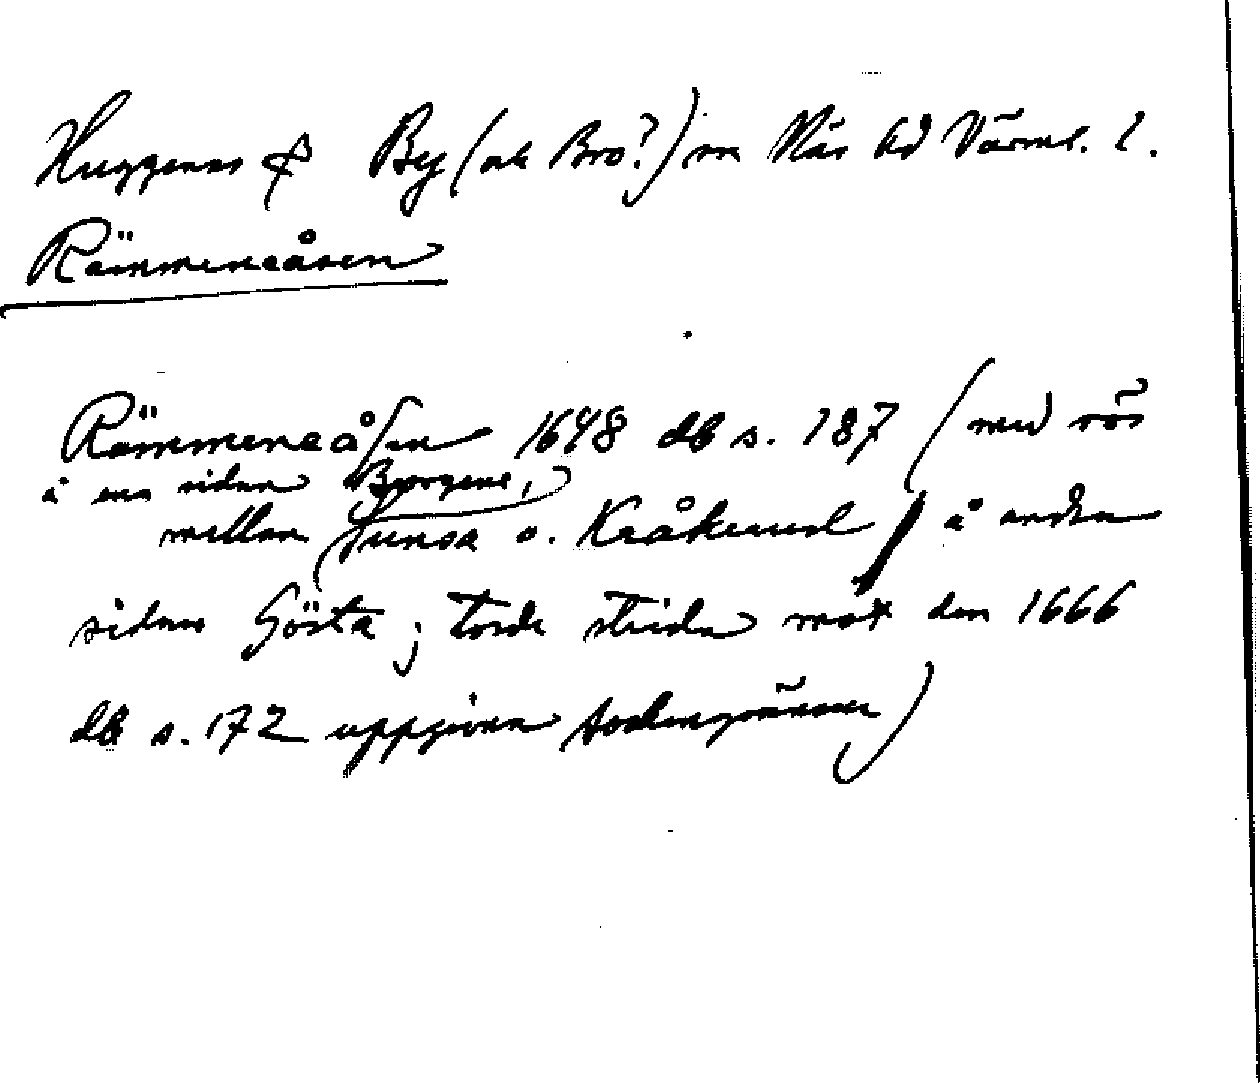 Huggenæs & By (ok Bro?) sn Näs hd Värml. l.
Rämmeneåsen
Rämmeneåsen 1648 db s. 187 (med rös
å ena sidan Byrgene,
mellan Sunda o. Kråkerud å andra
sidan Gösta; torde strida mot den 1666
db s. 172 uppgivna sockengränsen)